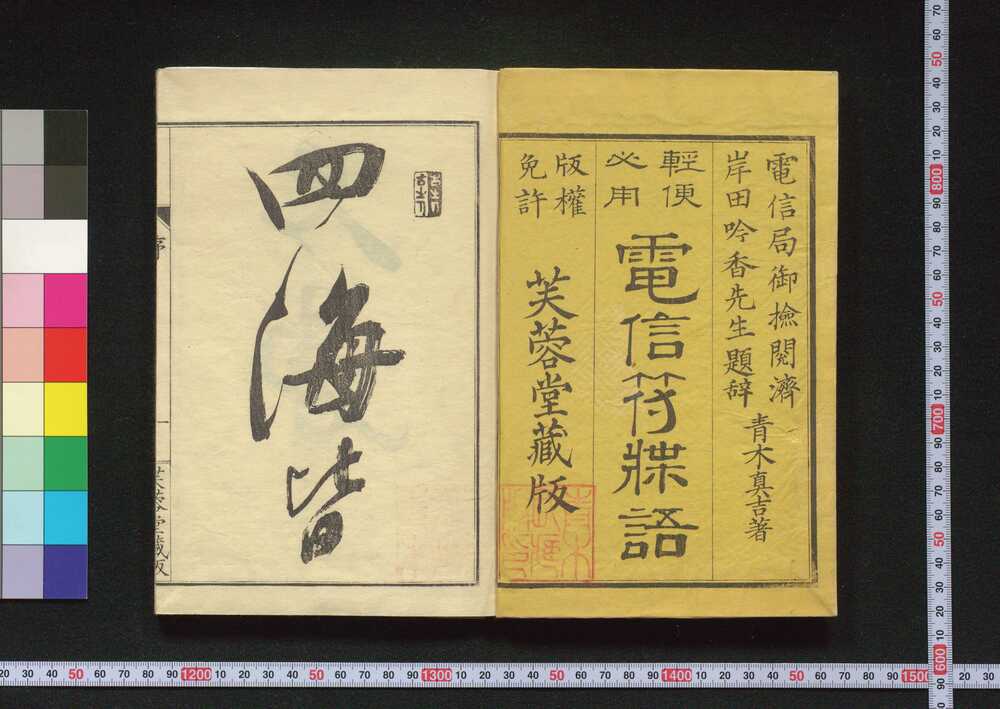 電信局御撿閲濟
岸田吟香先生題辞
青木真吉著
輕便
必用
電信符牒語
版權
免許
芙蓉堂藏版
四海皆
序
一
芙蓉堂藏版
70
60
50
40
30
20
10
800
90
80
70
60
50
40
30
20
10
700
90
80
70
60
50
40
30
20
10
600
90
20 30 40 50 60 70 80 90 1200 10 20 30 40 50 60 70 80 90 1300 10 20 30 40 50 60 70 80 90 1400 10 20 30 40 50 60 70 80 90 1500 20 30